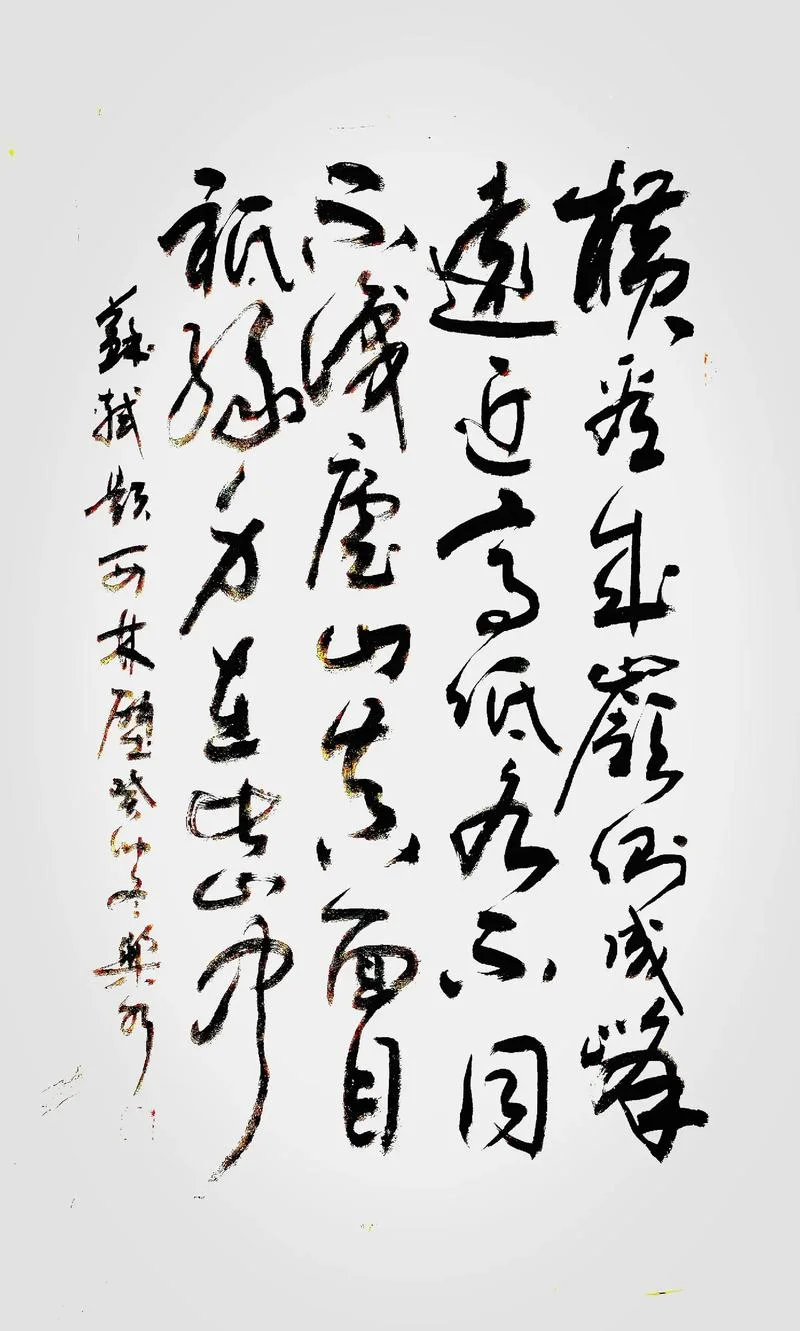 横看成嶺側成峰
遠近高低各不同
不識廬山真面目
祇緣身在此山中
蘇軾題西林壁癸卯冬樂水